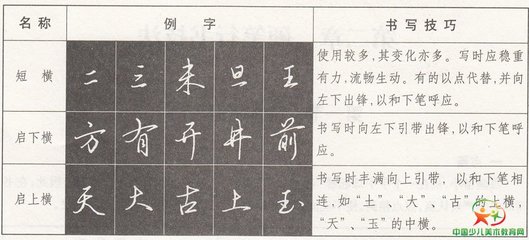 名称 例字 书写技巧
短横 二 三 未 旦 王
使用较多，其变化亦多。写时应稳重
有力，流畅生动。有的以点代替，并向
左下出锋，以和下笔呼应。
启下横 方 有 开 井 前
书写时向左下引带出锋，以和下笔呼
应。
启上横 天 大 古 土 玉
书写时丰满向上引带，以和下笔相
连，如“土”、“大”、“古”的上横，
“天”、“玉”的中横。
中国少儿美术教育网